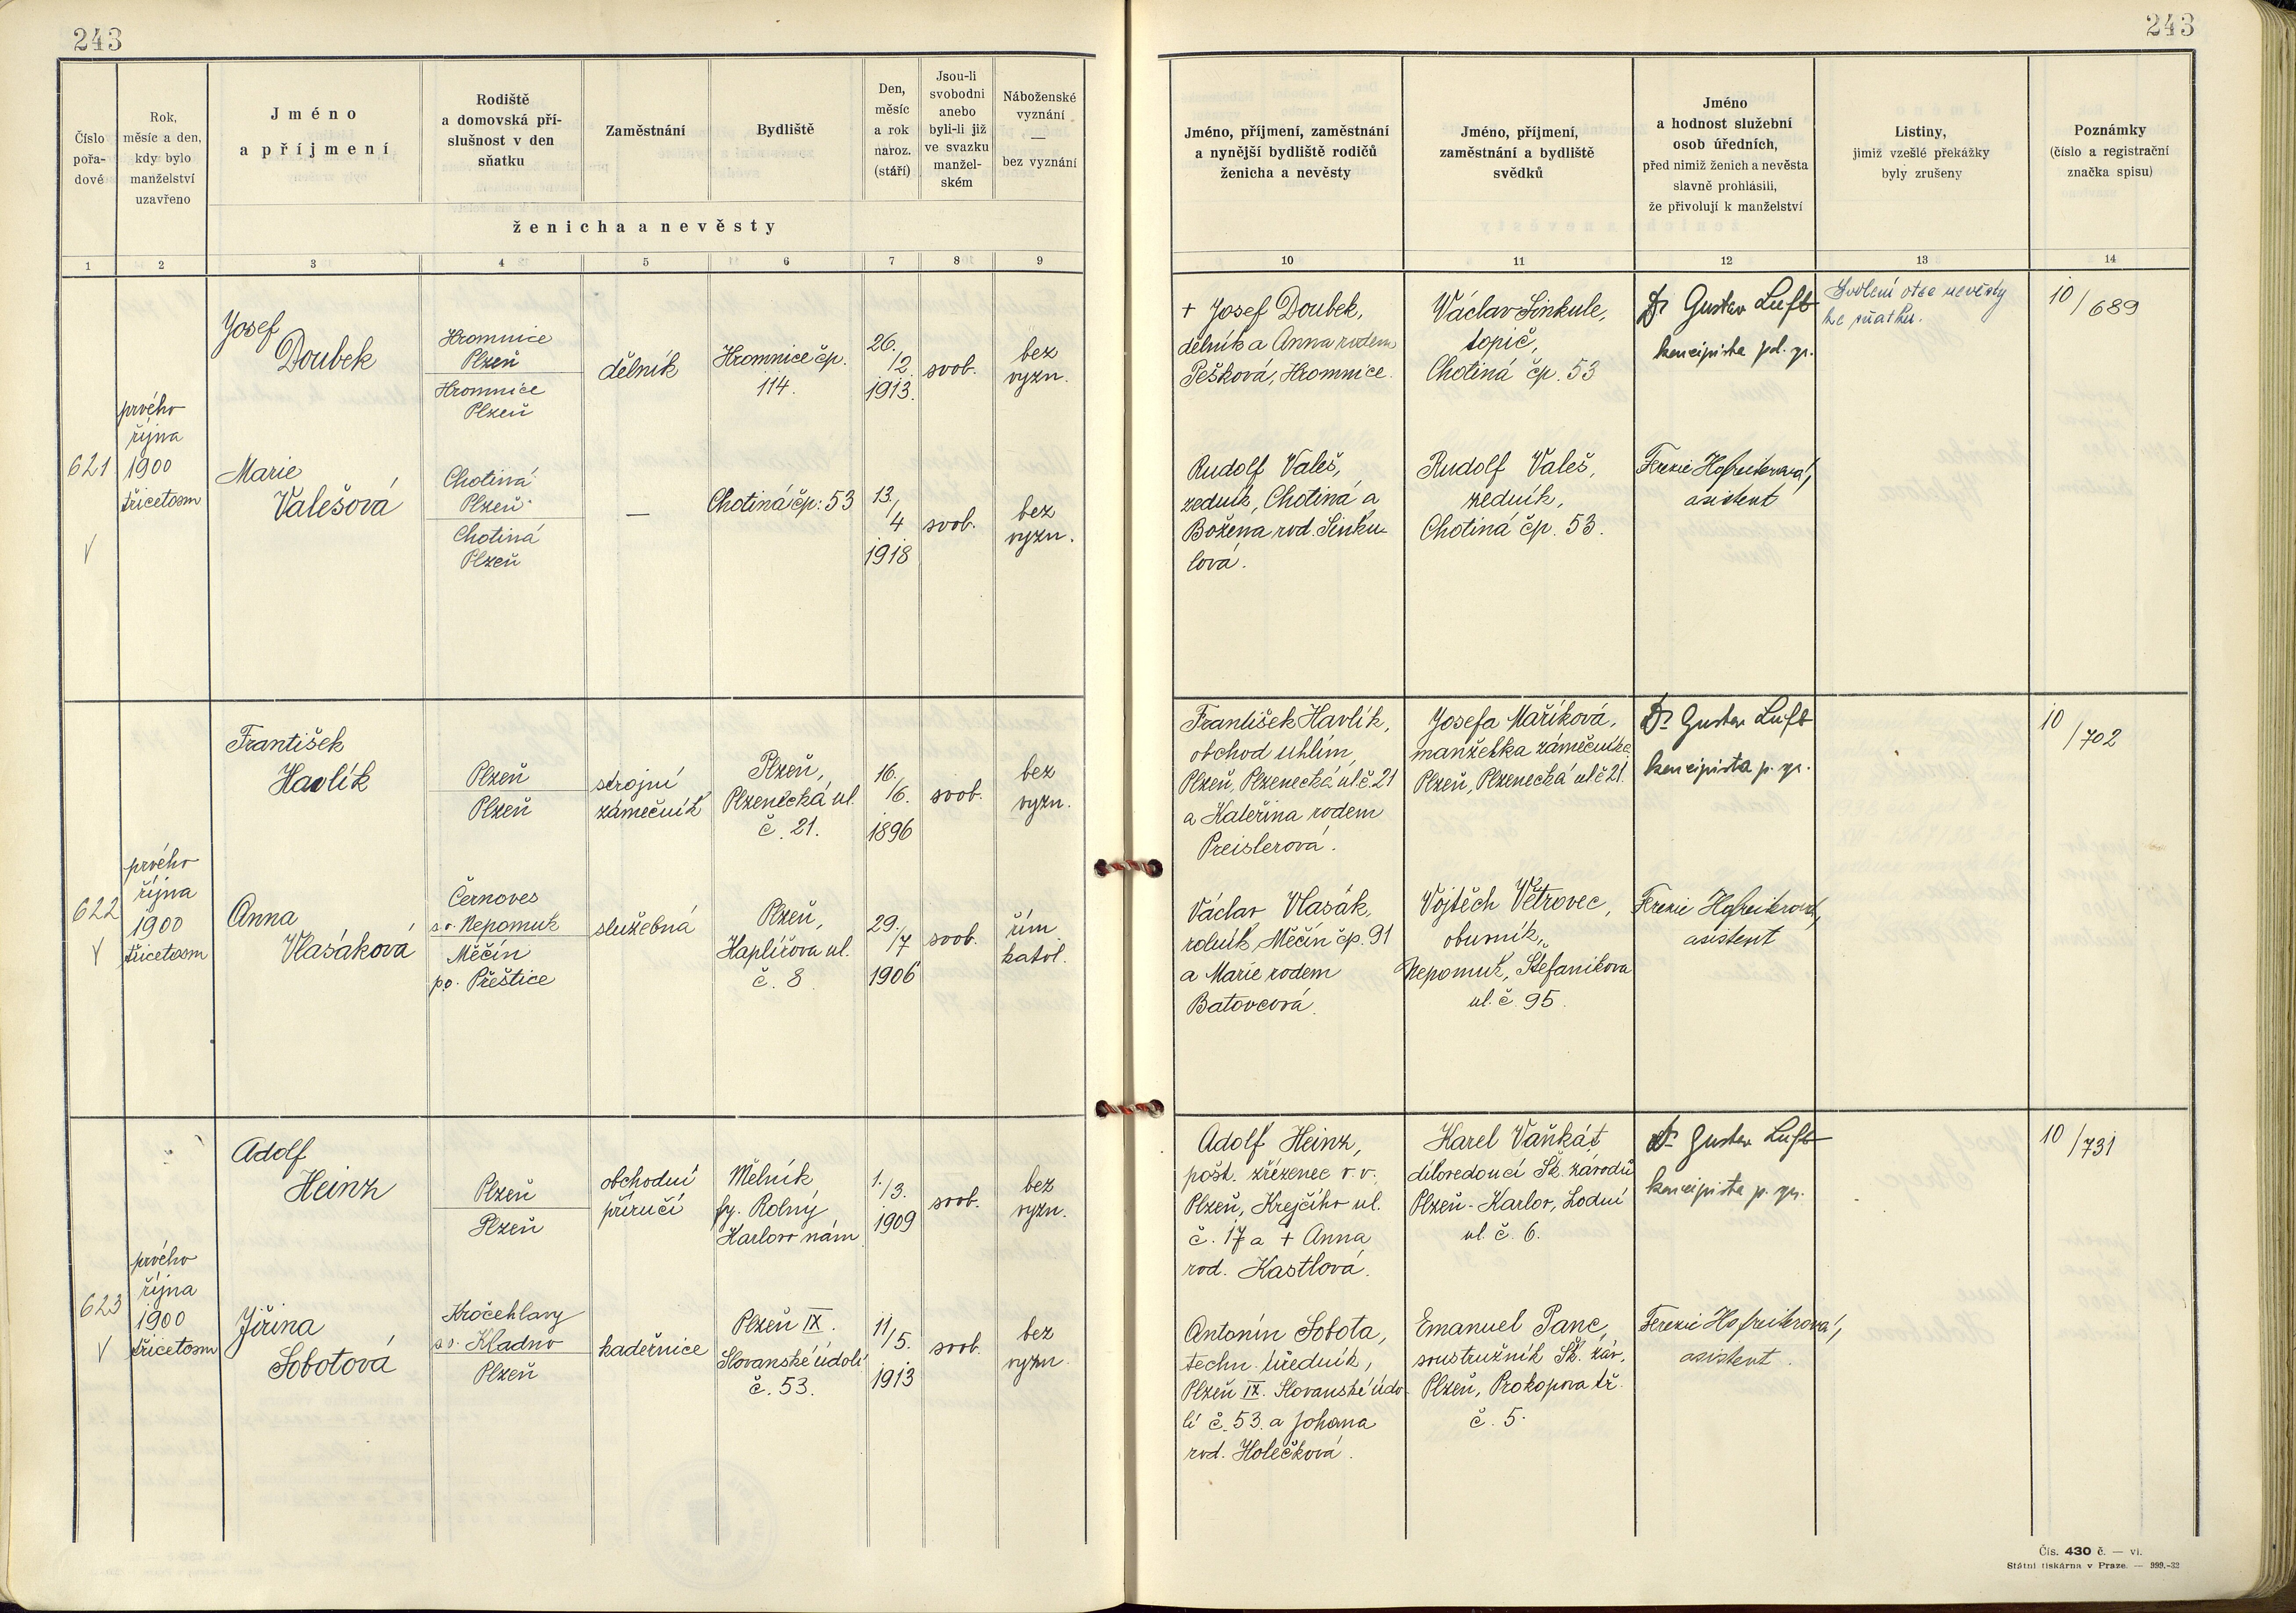 243
243
Číslo
pořa-
dové
Rok,
měsíc a den,
kdy bylo
manželství
uzavřeno
Jméno
a příjmení
Rodiště
a domovská pří-
slušnost v den
sňatku
Zaměstnání
Bydliště
Den,
měsíc
a rok
naroz.
(stáří)
Jsou-li
svobodni
anebo
byli-li již
ve svazku
manžel-
ském
Náboženské
vyznání
—
bez vyznání
ženicha a nevěsty
Jméno, příjmení, zaměstnání
a nynější bydliště rodičů
ženicha a nevěsty
Jméno, příjmení,
zaměstnání a bydliště
svědků
Jméno
a hodnost služební
osob úředních,
před nimiž ženich a nevěsta
slavně prohlásili,
že přivolují k manželství
Listiny,
jimiž vzešlé překážky
byly zrušeny
Poznámky
(číslo a registrační
značka spisu)
1 2 3 4 5 6 7 8 9
10 11 12 13 14
621
prvého
října
1900
třicetosm
Josef
Doubek
Hromnice
Plzeň
Hromnice
Plzeň
dělník
Hromnice čp.
114.
26.
/2.
1913.
svob.
bez
vyzn.
+ Josef Doubek,
dělník a Anna rodem
Pešková, Hromnice.
Václav Sinkule,
topič,
Chotiná čp. 53
Dr Gustav Luft
koncipista pol. spr.
Svolení otce nevěsty
ke sňatku.
10/689
Marie
Valešová
Chotiná
Plzeň
Chotiná
Plzeň
—
Chotiná čp: 53
13.
/4
1918
svob.
bez
vyzn.
Rudolf Valeš,
zedník, Chotiná a
Božena rod. Sinku-
lová.
Rudolf Valeš,
zedník,
Chotiná čp. 53.
asistent
622
prvého
října
1900
třicetosm
František
Havlík
Plzeň
Plzeň
strojní
zámečník
Plzeň,
Plzenecká ul.
č. 21.
16.
/6.
1896
svob.
bez
vyzn.
František Havlík,
obchod uhlím,
Plzeň, Plzenecká ul. č. 21
a Kateřina rodem
Preislerová.
Josefa Maříková,
manželka zámečníka
Plzeň, Plzenecká ul č 21.
Dr Gustav Luft
koncipista p. spr.
10/702
Anna
Vlasáková
Černoves
s.o. Nepomuk
Měčín
po. Přeštice
služebná
Plzeň,
Haplířova ul.
č. 8
29.
/7
1906
svob.
řím.
katol.
Václav Vlasák,
rolník, Měčín čp. 91
a Marie rodem
Batovcová.
Vojtěch Větrovec,
obuvník,
Nepomuk, Štefanikova
ul. č. 95.
asistent
623
prvého
října
1900
třicetosm
Adolf
Heinz
Plzeň
Plzeň
obchodní
příručí
Mělník
fy. Rolný
Karlovo nám.
1.
/3.
1909
svob.
bez
vyzn.
Adolf Heinz,
pošt. zřízenec v. v.
Plzeň, Krejčího ul.
č. 17 a + Anna
rod. Kastlová.
Karel Vaňkát
dílovedoucí Šk. závodů
Plzeň - Karlov, Lodní
ul. č. 6.
Dr Gustav Luft
koncipista p. spr.
10/731
Jiřina
Sobotová
Kročehlavy
s.o. Kladno
Plzeň
kadeřnice
Plzeň IX.
Slovanské údolí
č. 53.
11
/5.
1913
svob.
bez
vyzn.
Antonín Sobota,
techn. úředník,
Plzeň IX. Slovanské údo-
lí č. 53. a Johana
rod. Holečková.
Emanuel Panc,
soustružník Šk. záv.
Plzeň, Prokopova tř.
č. 5.
asistent.
Čís. 430 č. — vi.
Státní tiskárna v Praze. — 999.-32